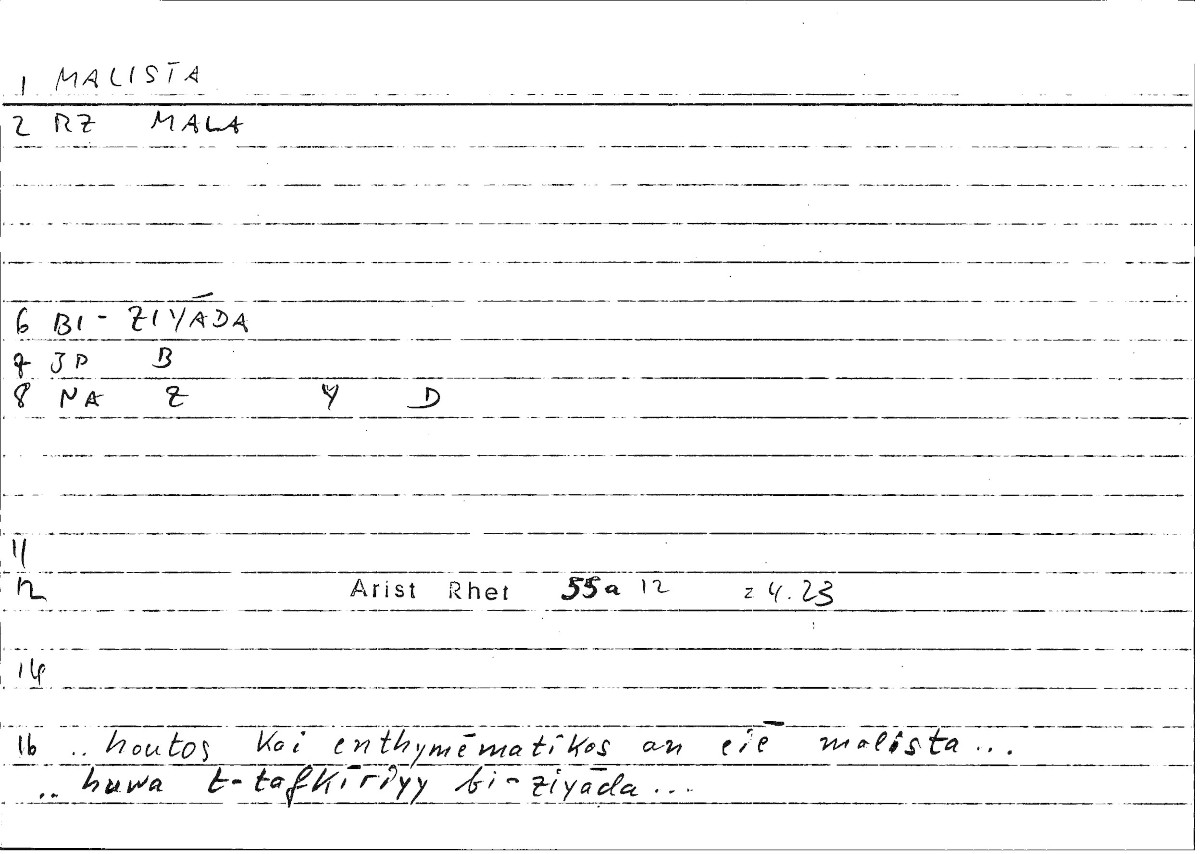 1 MALISTA
2 RZ MALA
6 BI- ZIYĀDA
7 JP B
8 NA Z Y D
11
12 Arist Rhet 55a 12 z 4.23
14
16 .. houtos kai enthymēmatikos an eiē malista...
.. huwa t-tafkīrīyy bi-ziyāda...